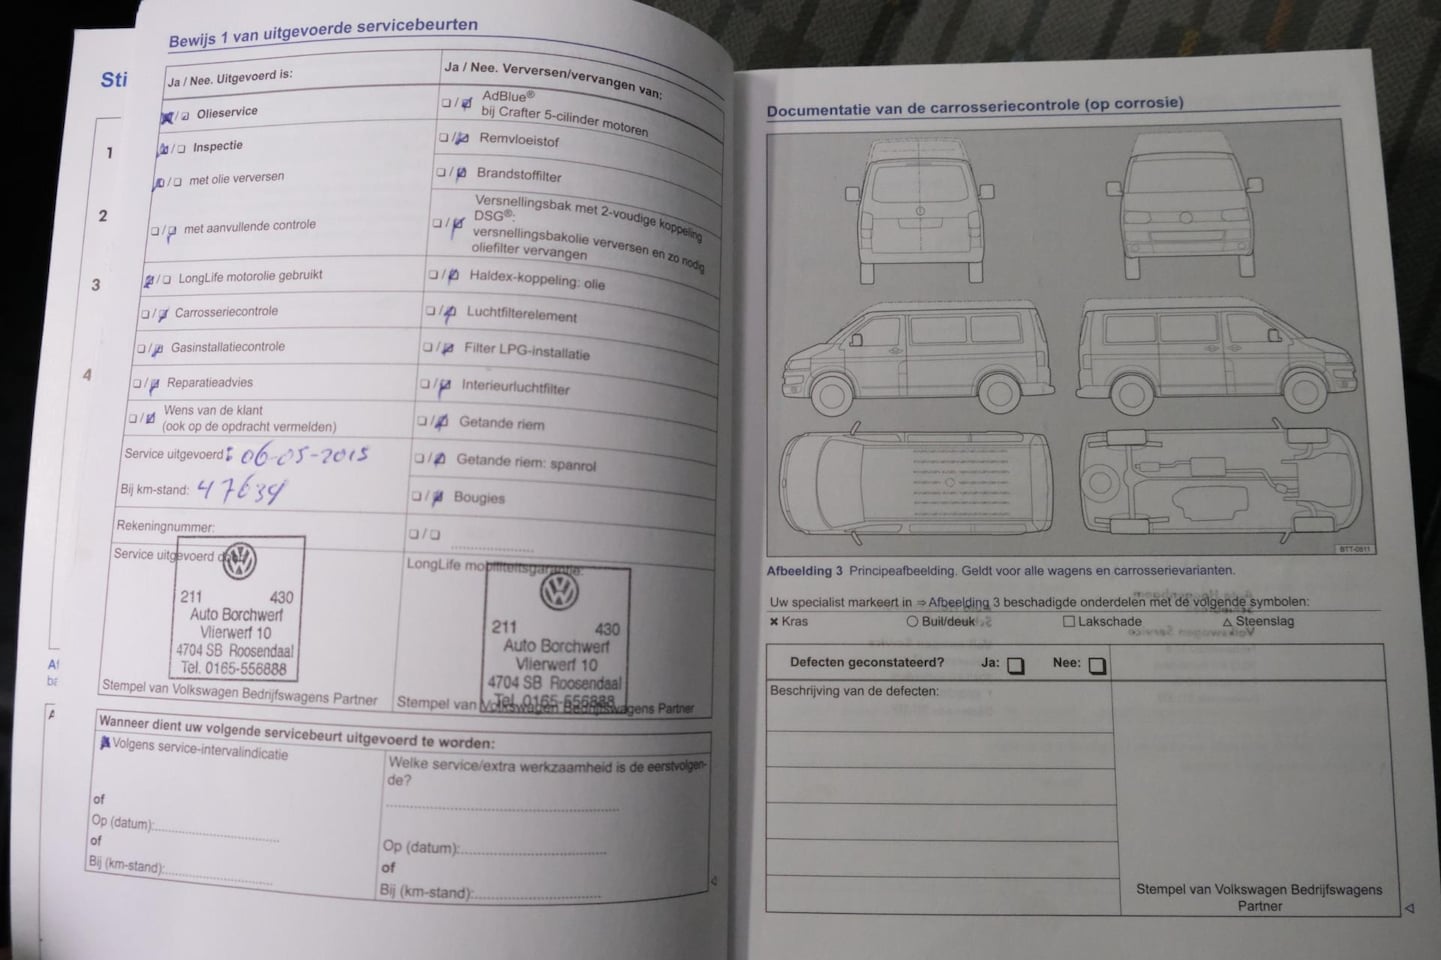 Bewijs 1 van uitgevoerde servicebeurten
Sti
1
2
3
4
Ja / Nee. Uitgevoerd is:
Olieservice
Inspectie
met olie verversen
met aanvullende controle
LongLife motorolie gebruikt
Carrosseriecontrole
Gasinstallatiecontrole
Reparatieadvies
Wens van de klant
(ook op de opdracht vermelden)
Service uitgevoerd: 06-05-2015
Bij km-stand: 47639
Rekeningnummer:
Service uitgevoerd door:
211 430
Auto Borchwerf
Vlierwerf 10
4704 SB Roosendaal
Tel. 0165-556888
Stempel van Volkswagen Bedrijfswagens Partner
Ja / Nee. Verversen/vervangen van:
AdBlue®
bij Crafter 5-cilinder motoren
Remvloeistof
Brandstoffilter
Versnellingsbak met 2-voudige koppeling
DSG®:
versnellingsbakolie verversen en zo nodig
oliefilter vervangen
Haldex-koppeling: olie
Luchtfilterelement
Filter LPG-installatie
Interieurluchtfilter
Getande riem
Getande riem: spanrol
Bougies
LongLife mobiliteitsgarantie:
211 430
Auto Borchwerf
Vlierwerf 10
4704 SB Roosendaal
Tel. 0165-556888
Stempel van Volkswagen Bedrijfswagens Partner
Wanneer dient uw volgende servicebeurt uitgevoerd te worden:
Volgens service-intervalindicatie
of
Op (datum):
of
Bij (km-stand):
Welke service/extra werkzaamheid is de eerstvolgen-
de?
Op (datum):
of
Bij (km-stand):
Documentatie van de carrosseriecontrole (op corrosie)
BTT-0811
Afbeelding 3 Principeafbeelding. Geldt voor alle wagens en carrosserievarianten.
Uw specialist markeert in ⇒ Afbeelding 3 beschadigde onderdelen met de volgende symbolen:
× Kras ○ Buil/deuk □ Lakschade △ Steenslag
Defecten geconstateerd? Ja: Nee:
Beschrijving van de defecten:
Stempel van Volkswagen Bedrijfswagens
Partner